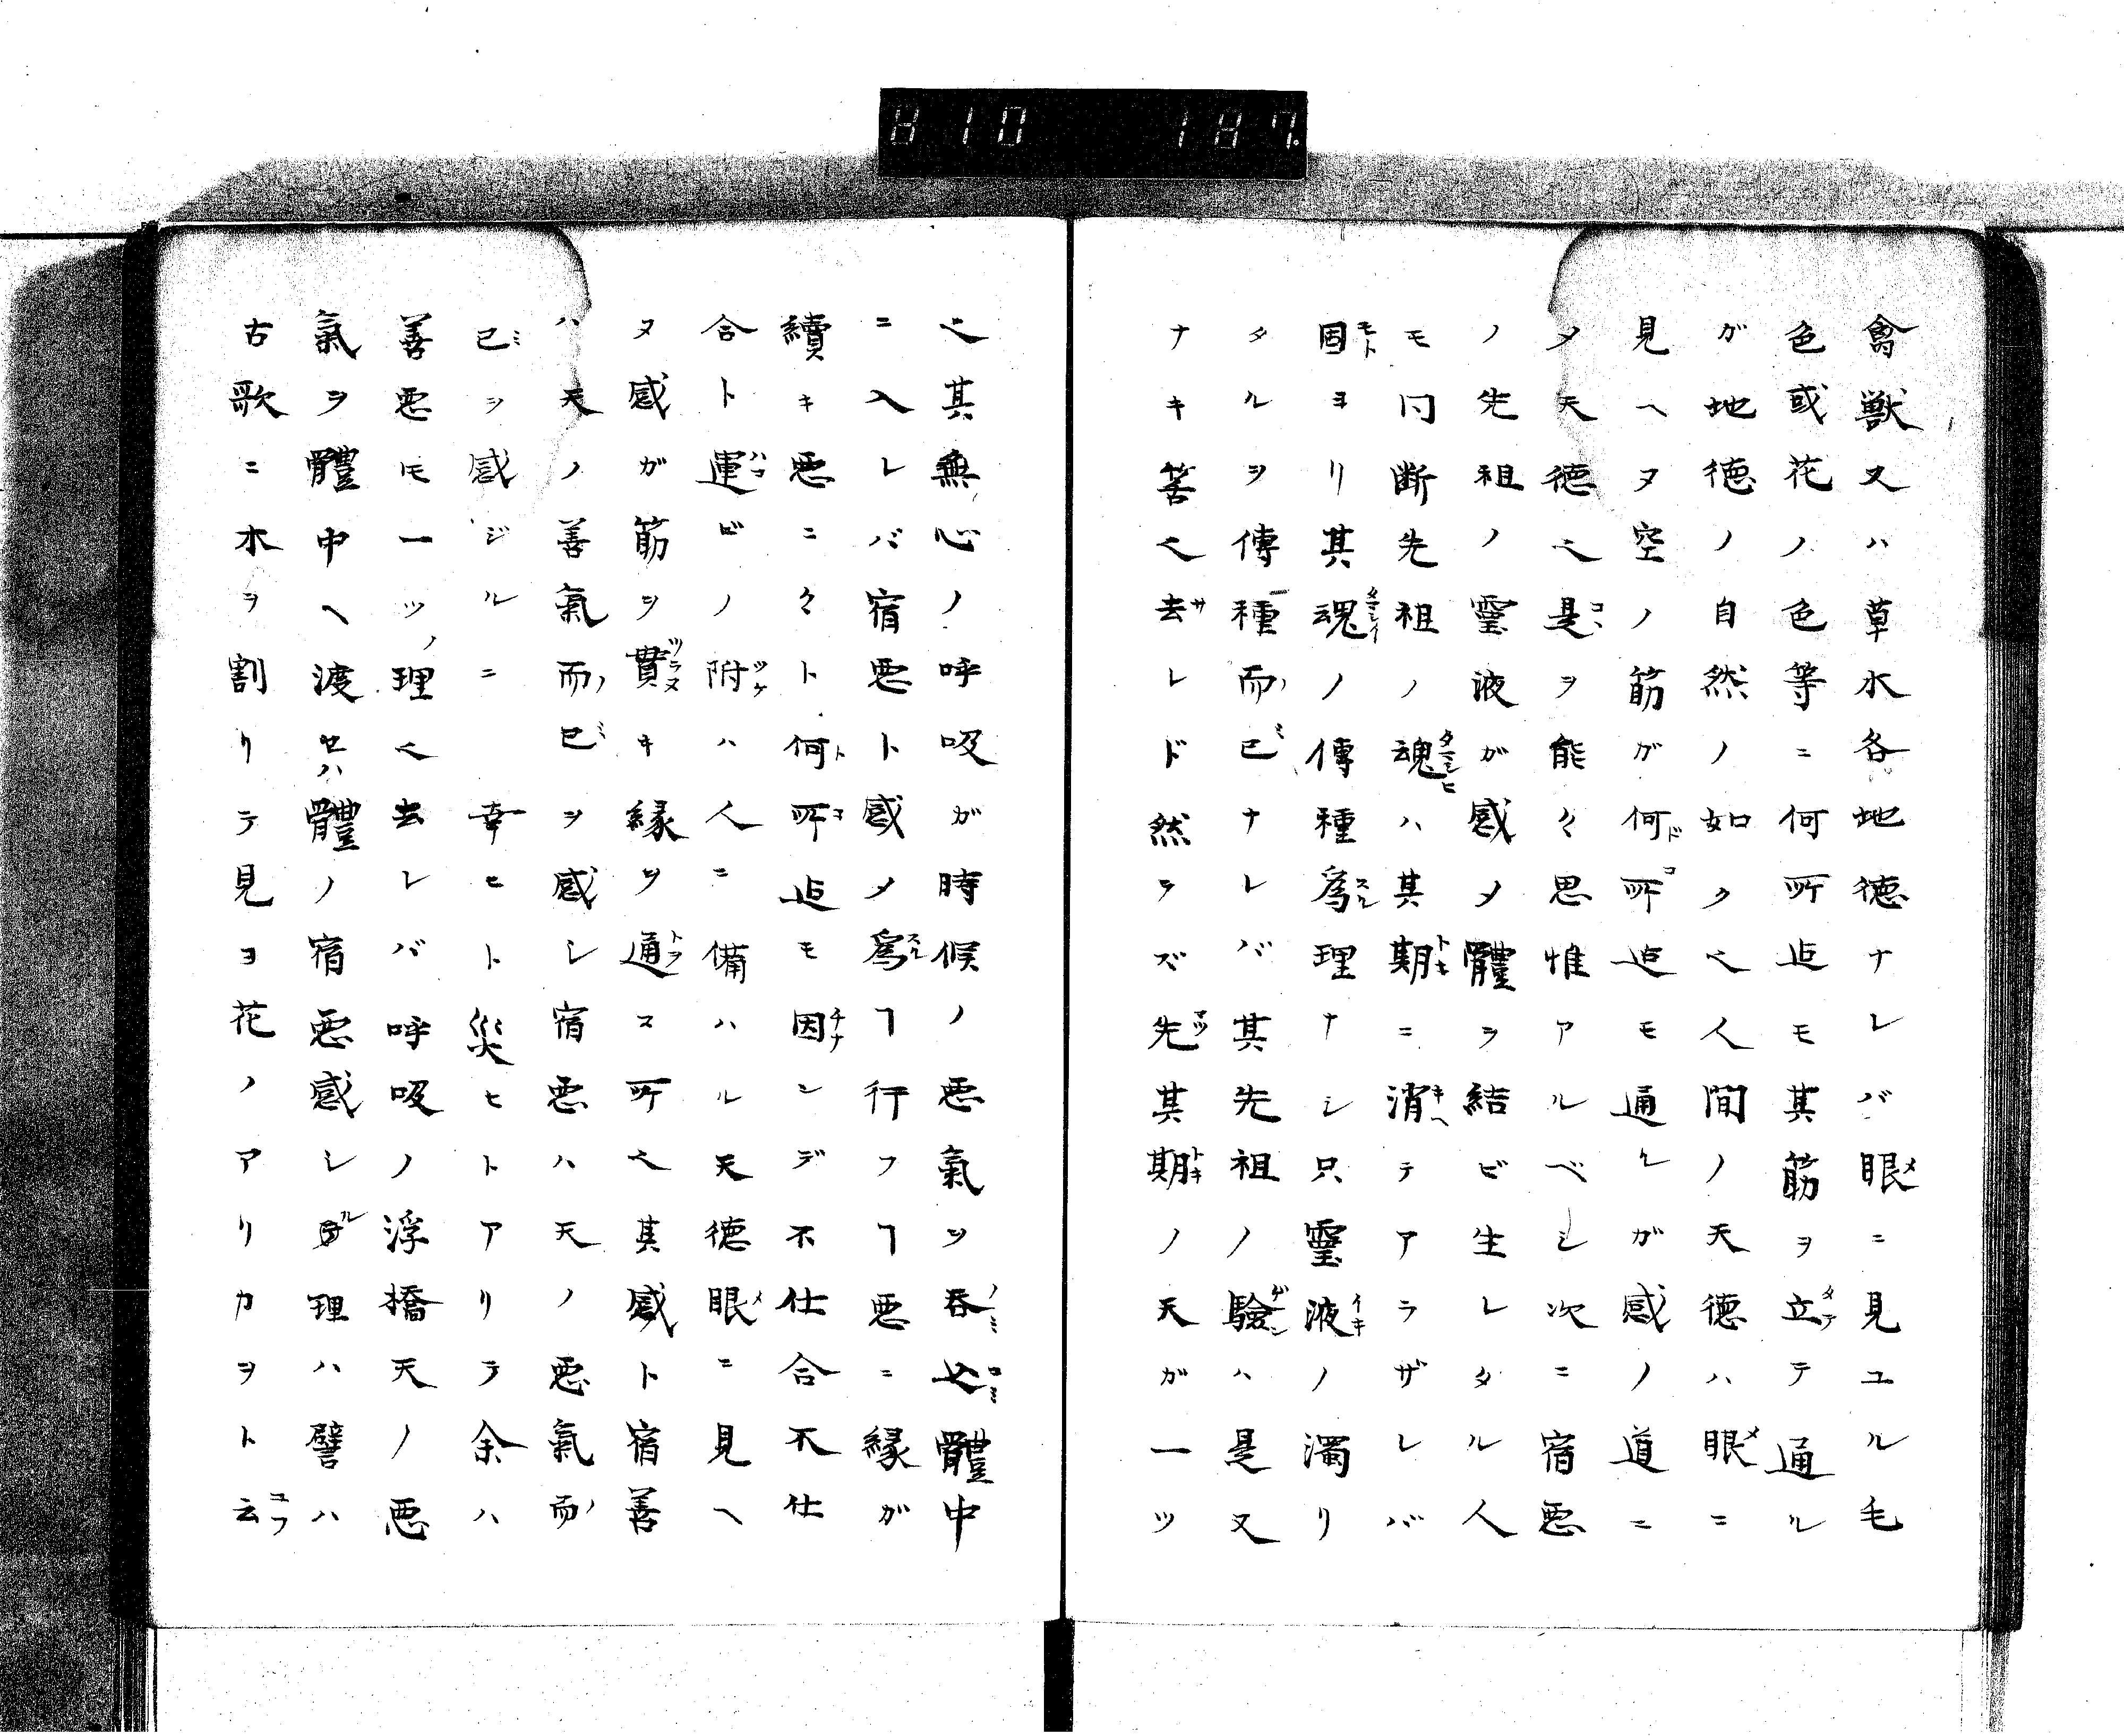 810 187.
禽獣又ハ草木各地徳ナレバ眼ニ見ユル毛
色或花ノ色等ニ何所迠モ其筋ヲ立テ通ル
ガ地徳ノ自然ノ如ク𠆢人間ノ天徳ハ眼ニ
見ヘヌ空ノ筋ガ何所迠モ通ルガ感ノ道ニ
〆天徳𠆢是ヲ能々思惟アルベシ次ニ宿悪
ノ先祖ノ霊液ガ感〆體ヲ結ビ生レタル人
モ門断先祖ノ魂ハ其期ニ消テアラザレバ
因ヨリ其魂ノ傳種為理ナシ只霊液ノ濁リ
タルヲ傳種而已ナレバ其先祖ノ驗ハ是又
ナキ筈𠆢去レド然ラズ先其期ノ天ガ一ツ
𠆢其無心ノ呼吸ガ時候ノ悪氣ヲ呑込體中
ニ入レバ宿悪ト感〆為ヿ行フヿ悪ニ縁ガ
續キ悪ニ々ト何所迠モ因ンデ不仕合不仕
合ト運ビノ附ハ人ニ備ハル天徳眼ニ見ヘ
ヌ感ガ筋ヲ貫キ縁ヲ通ス所𠆢其感ト宿善
ハ天ノ善氣而已ヲ感シ宿悪ハ天ノ悪氣而
已ヲ感ジルニ幸ヒト災ヒトアリテ余ハ
善悪モ一ツノ理𠆢去レバ呼吸ノ浮橋天ノ悪
氣ヲ體中ヘ渡セハ體ノ宿悪感シル理ハ譬ハ
古歌ニ木ヲ割リテ見ヨ花ノアリカヲト云